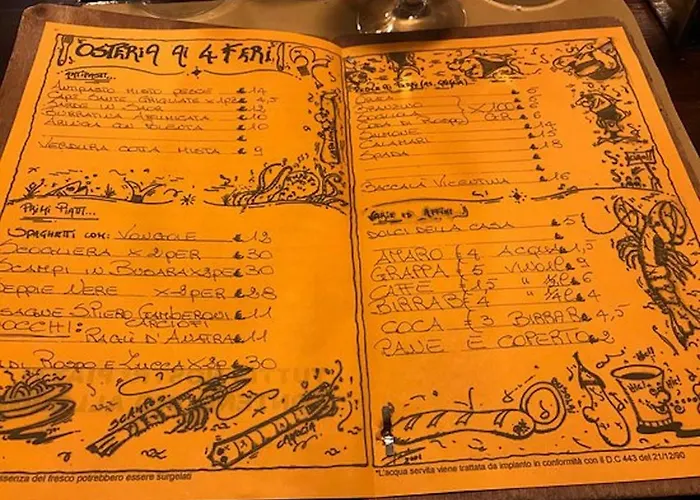 OSTERIA AI 4 FERI
ANTIPASTI...
ANTIPASTO MISTO PESCE € 14
CAPE SANTE GRIGLIATE x 1PZ € 4,5
SARDE IN SAOR € 12
BURRATINA AFFUMICATA € 10
ARINGA CON POLENTA € 10
VERDURA COTTA MISTA € 9
PRIMI PIATTI...
SPAGHETTI CON: VONGOLE € 12
SCOGLIERA x 2 PER € 30
SCAMPI IN BUSARA x 2 PE € 30
SEPPIE NERE x 2 PER € 28
LASAGNE S.PIERO GAMBERONI
CARCIOFI € 11
GNOCCHI: RAGÙ D'ANATRA € 11
ROSPO ZUCCA x 2P € 30
ORATA
BRANZINO
SOGLIOLA } x 100 GR € 6
CODA DI ROSPO
SALMONE € 14
CALAMARI € 15
SPADA € 18
BACCALÀ VICENTINA € 16
VARIE ED AFFINI
DOLCI DELLA CASA € 5
AMARO € 4 ACQUA € 1,5
GRAPPA € 5 VINO 1L € 9
CAFFE € 1,5 " ½L € 6
BIRRA B € 4 " ¼L € 4
COCA € 3 BIRRA R € 4,5
PANE E COPERTO € 2
SCAMPO
CANOCIA
HIC!
HIC!
essenza del fresco potrebbero essere surgelati
*L'acqua servita viene trattata da impianto in conformità con il D.C 443 del 21/12/90